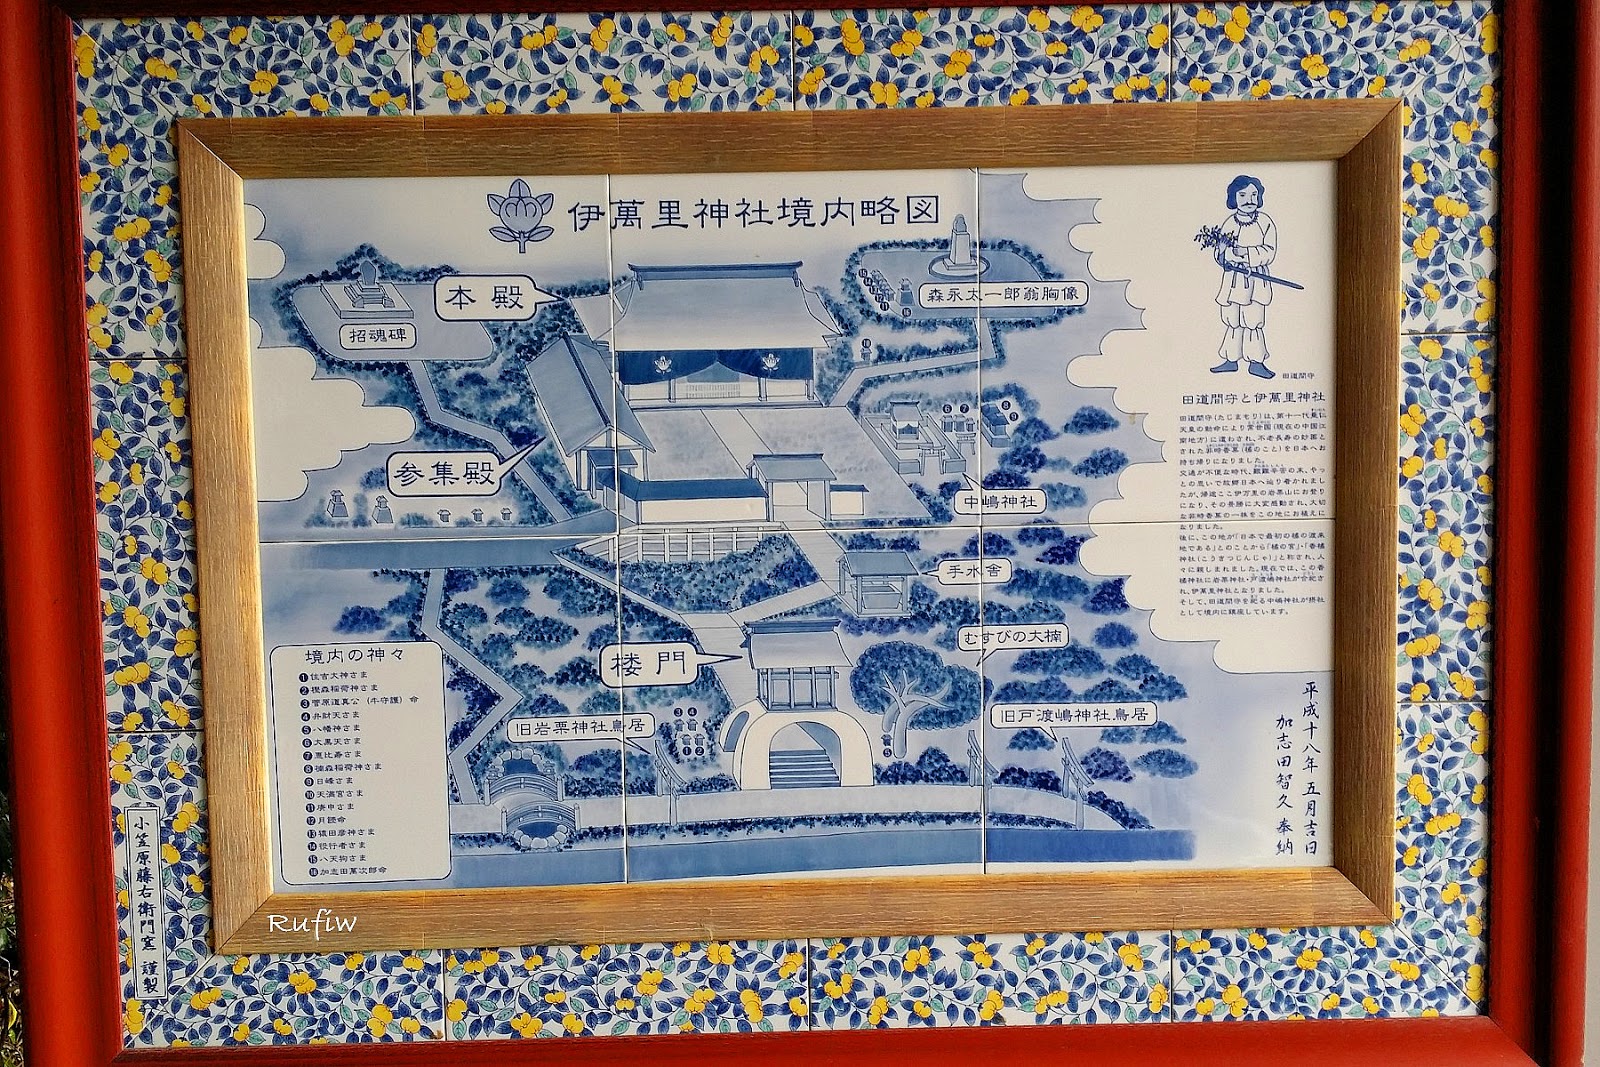 伊萬里神社境内略図
本殿
招魂碑
森永太一郎翁胸像
参集殿
中嶋神社
手水舎
むすびの大楠
楼門
旧岩栗神社鳥居
旧戸渡嶋神社鳥居
境内の神々
❶住吉大神さま
❸菅原道真公（牛守護）命
❹弁財天さま
❺八幡神さま
❻大黒天さま
❼恵比寿さま
❽楠森稲荷神さま
❾日峰さま
❿天満宮さま
⓫庚申さま
⓬月読命
⓭猿田彦神さま
⓮役行者さま
⓯八天狗さま
⓰加志田萬次郎命
田道間守
田道間守と伊萬里神社
田道間守(たじまもり)は、第十一代垂仁
天皇の勅命により常世国(現在の中国江
南地方)に遣わされ、不老長寿の妙菓と
された非時香菓(橘のこと)を日本へお
持ち帰りになりました。
交通が不便な時代、艱難辛苦の末、やっ
との思いで故郷日本へ辿り着かれまし
たが、帰途ここ伊万里の岩栗山にお登り
になり、その景勝に大変感動され、大切
な非時香菓の一株をこの地にお植えに
なりました。
後に、この地が「日本で最初の橘の渡来
地である」とのことから「橘の宮」・「香橘
神社(こうきつじんじゃ)」と称され、人
々に親しまれました。現在では、この香
橘神社に岩栗神社・戸渡嶋神社が合祀さ
れ、伊萬里神社となりました。
そして、田道間守を祀る中嶋神社が摂社
として境内に鎮座しています。
平成十八年五月吉日
加志田智久 奉納
小笠原藤右衛門窯 謹製
Rufiw